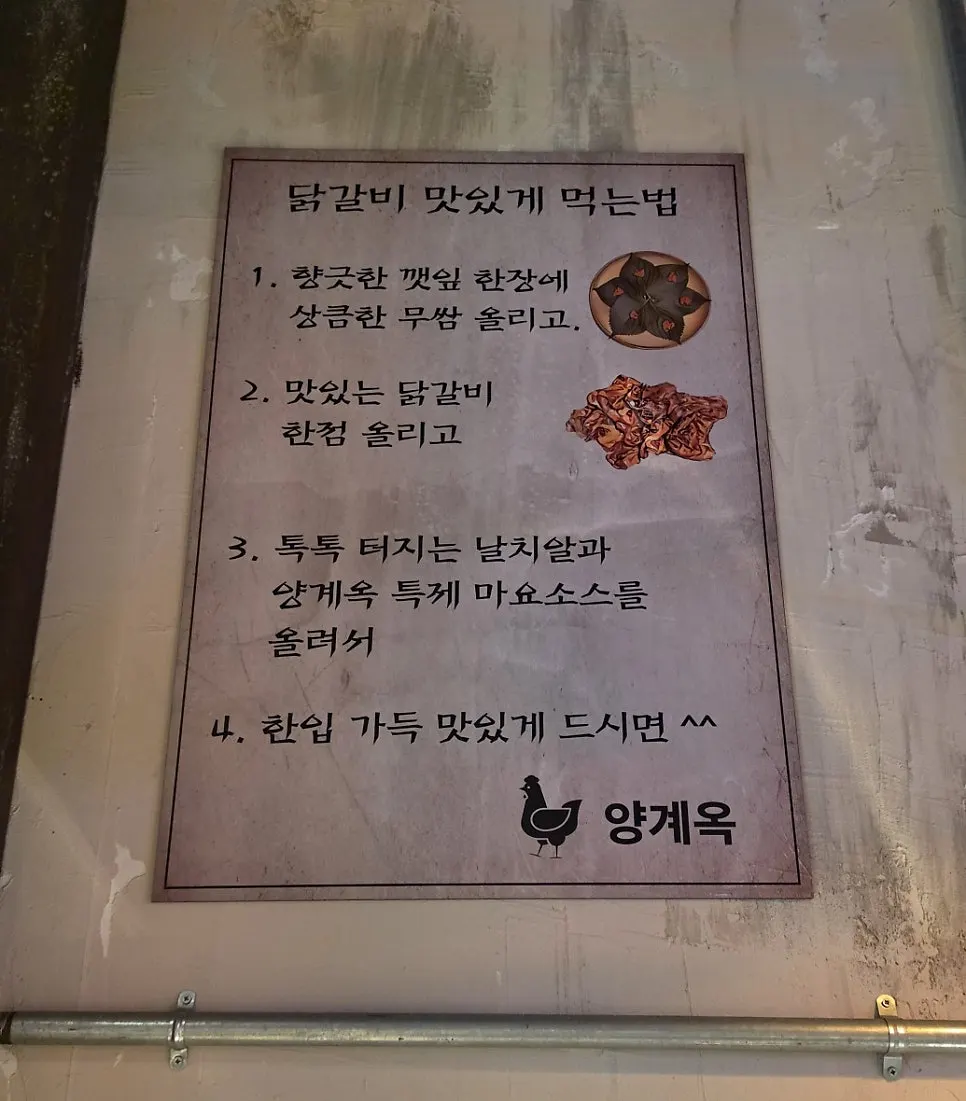 닭갈비 맛있게 먹는법
1. 향긋한 깻잎 한장에
상큼한 무쌈 올리고.
2. 맛있는 닭갈비
한점 올리고
3. 톡톡 터지는 날치알과
양계옥 특제 마요소스를
올려서
4. 한입 가득 맛있게 드시면 ^^
양계옥